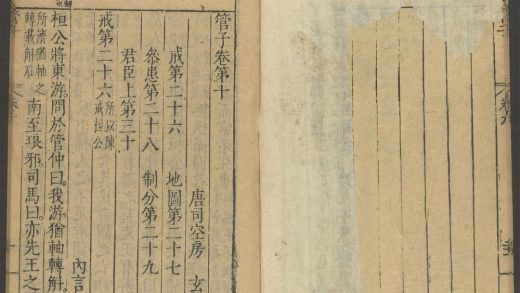 管子卷第十
唐司空房玄
戒第二十六 地圖第二十七
叅患第二十八 制分第二十九
君臣上第三十
戒第二十六 所以陳戒桓公
內言
桓公將東游問於管仲曰我游猶軸轉斛
所濟猶軸之轉載斛石 南至琅邪司馬曰亦先王之